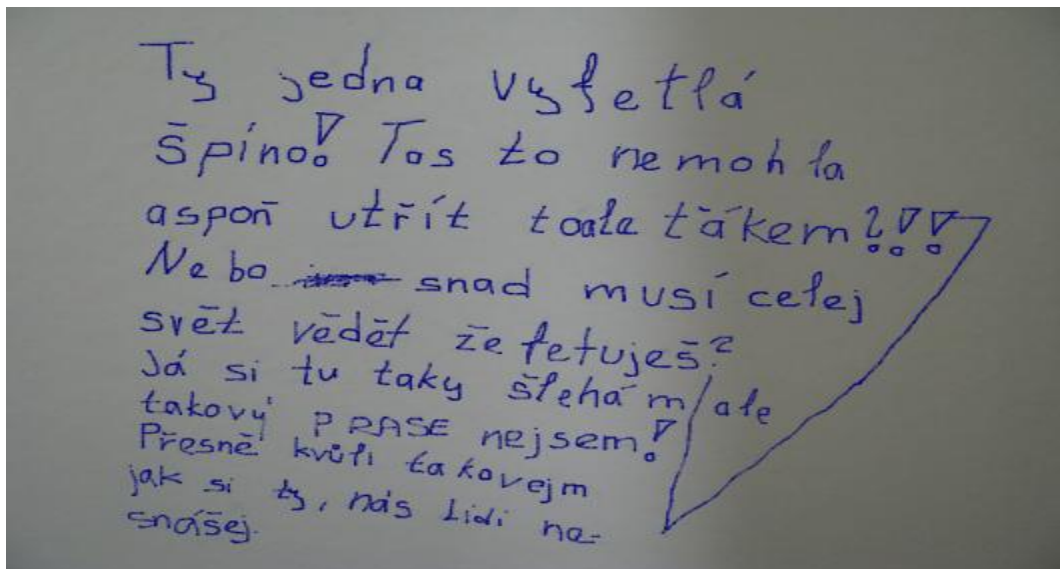 Ty jedna vyfetlá
špíno! Tos to nemohla
aspoň utřít toaleťákem?!!
Nebo snad musí celej
svět vědět že fetuješ?
Já si tu taky šlehám ale
takový PRASE nejsem!
Přesně kvůli takovejm
jak si ty, nás lidi ne-
snášej.